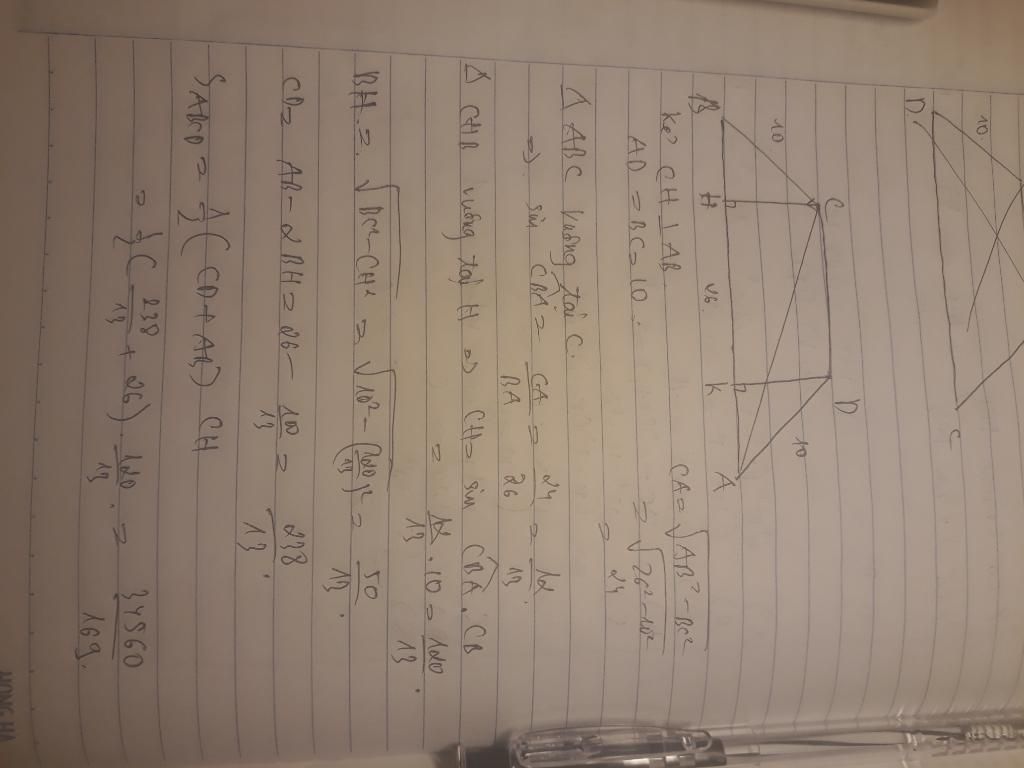 10
D
C
C
D
10
10
B
H
26
K
A
Kẻ CH ⊥ AB.
AD = BC = 10.
CA = √(AB² - BC²)
= √(26² - 10²)
= 24
Δ ABC vuông tại C.
=> sin CBA = CA/BA = 24/26 = 12/13.
Δ CHB vuông tại H => CH = sin CBA . CB
= 12/13 . 10 = 120/13.
BH = √(BC² - CH²) = √(10² - (120/13)²) = 50/13.
CD = AB - 2BH = 26 - 100/13 = 238/13.
S ABCD = 1/2 (CD + AB) CH
= 1/2 (238/13 + 26) . 120/13 = 34560/169.